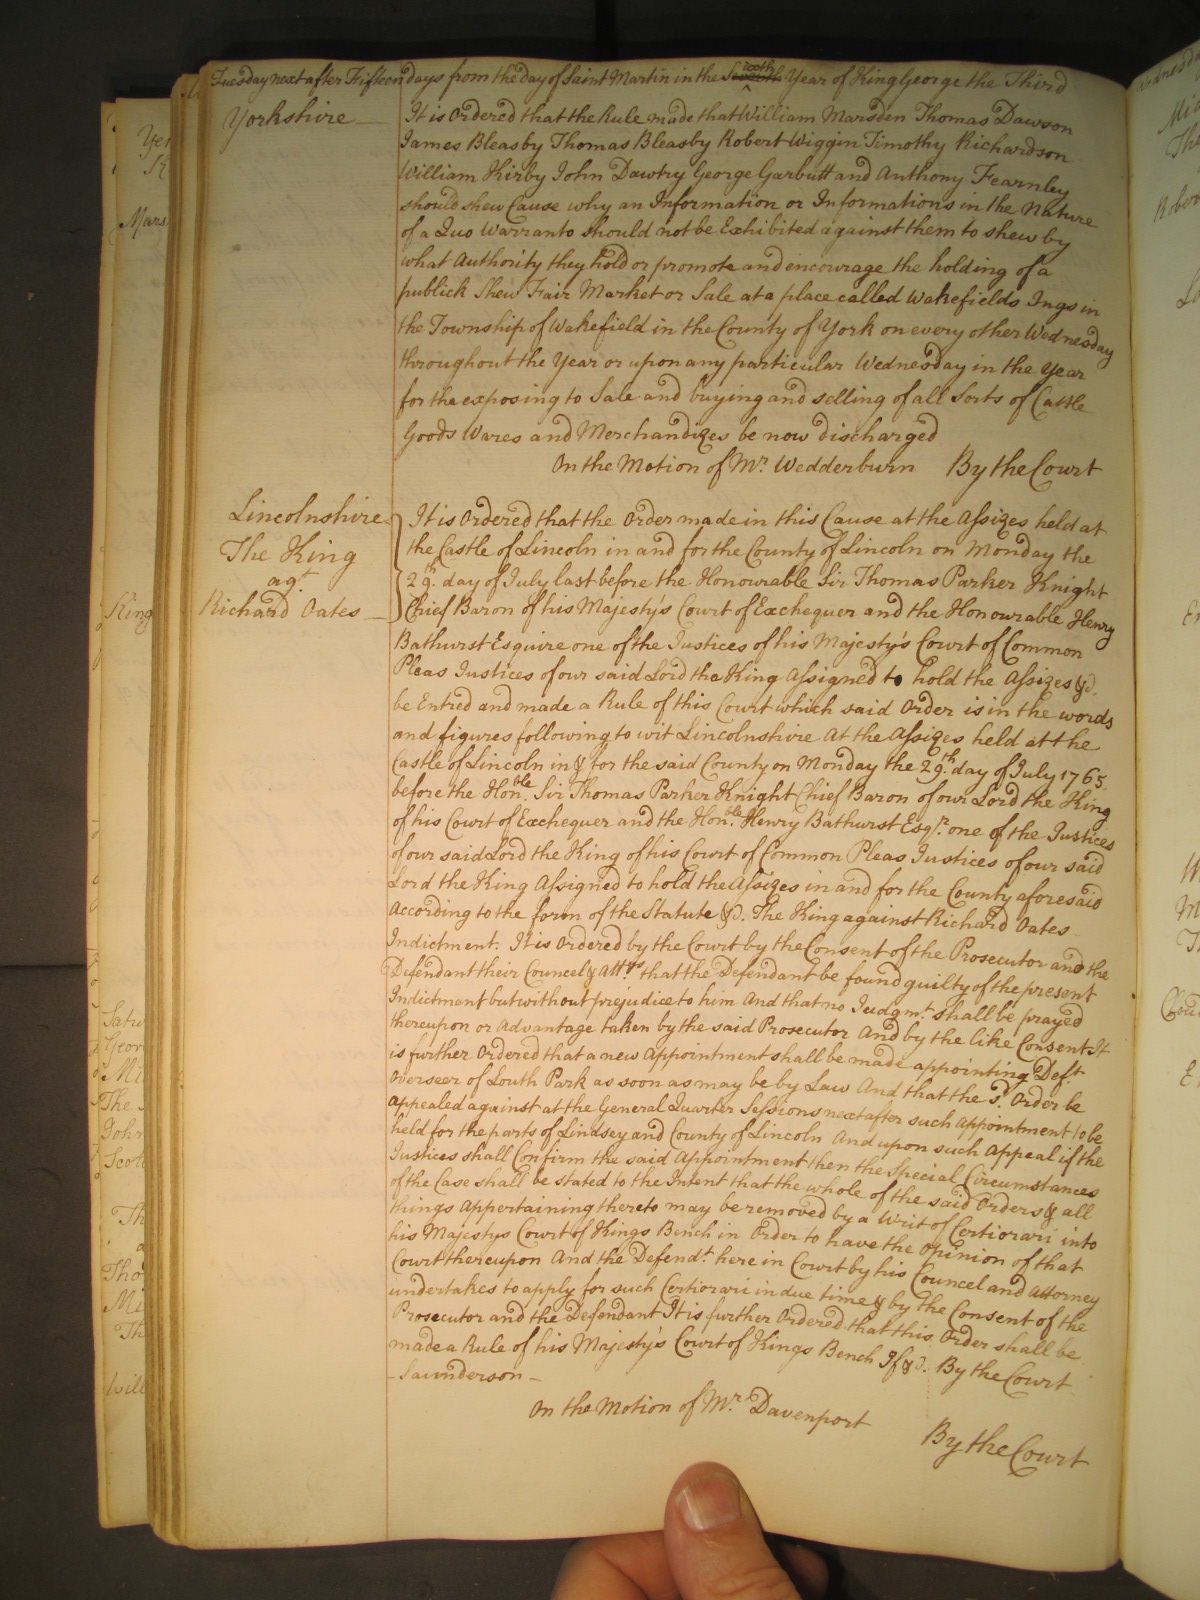 Tuesday next after Fifteen days from the day of Saint Martin in the Sixth Year of King George the Third
Yorkshire
It is Ordered that the Rule made that William Marsden Thomas Dawson
James Bleasby Thomas Bleasby Robert Wiggin Timothy Richardson
William Kirby John Dawtry George Garbutt and Anthony Fearnley
should shew Cause why an Information or Informations in the Nature
of a Quo Warranto should not be Exhibited against them to shew by
what Authority they hold or promote and encourage the holding of a
publick Shew Fair Market or Sale at a place called Wakefields Ings in
the Township of Wakefield in the County of York on every other Wednesday
throughout the Year or upon any particular Wednesday in the Year
for the exposing to Sale and buying and selling of all Sorts of Cattle
Goods Wares and Merchandizes be now discharged
On the Motion of Mr. Wedderburn By the Court
Lincolnshire
The King
agt.
Richard Oates
It is Ordered that the Order made in this Cause at the Assizes held at
the Castle of Lincoln in and for the County of Lincoln on Monday the
29th. day of July last before the Honourable Sir Thomas Parker Knight
Chief Baron of his Majesty's Court of Exchequer and the Honourable Henry
Bathurst Esquire one of the Justices of his Majesty's Court of Common
Pleas Justices of our said Lord the King Assigned to hold the Assizes &c.
be Entred and made a Rule of this Court which said Order is in the words
and figures following to wit Lincolnshire At the Assizes held at the
Castle of Lincoln in & for the said County on Monday the 29th. day of July 1765.
before the Honble. Sir Thomas Parker Knight Chief Baron of our Lord the King
of his Court of Exchequer and the Honble. Henry Bathurst Esqr. one of the Justices
of our said Lord the King of his Court of Common Pleas Justices of our said
Lord the King Assigned to hold the Assizes in and for the County aforesaid
According to the form of the Statute &c. The King against Richard Oates
Indictment. It is Ordered by the Court by the Consent of the Prosecutor and the
Defendant their Councel & Attys that the Defendant be found guilty of the present
Indictment but without prejudice to him And that no Judgmt. shall be prayed
thereupon or Advantage taken by the said Prosecutor And by the like Consent It
is further Ordered that a new Appointment shall be made appointing Deft.
Overseer of Louth Park as soon as may be by Law And that the sd. Order be
Appealed against at the General Quarter Sessions next after such Appointment to be
held for the parts of Lindsey and County of Lincoln And upon such Appeal if the
Justices shall Confirm the said Appointment then the Special Circumstances
of the Case shall be stated to the Intent that the whole of the said Orders & all
things Appertaining thereto may be removed by a Writ of Certiorari into
his Majestys Court of Kings Bench in Order to have the Opinion of that
Court thereupon And the Defendt. here in Court by his Councel and Attorney
undertakes to apply for such Certiorari in due time & by the Consent of the
Prosecutor and the Defendant It is further Ordered that this Order shall be
made a Rule of his Majesty's Court of Kings Bench If &c. By the Court
- Saunderson -
On the Motion of Mr. Davenport
By the Court